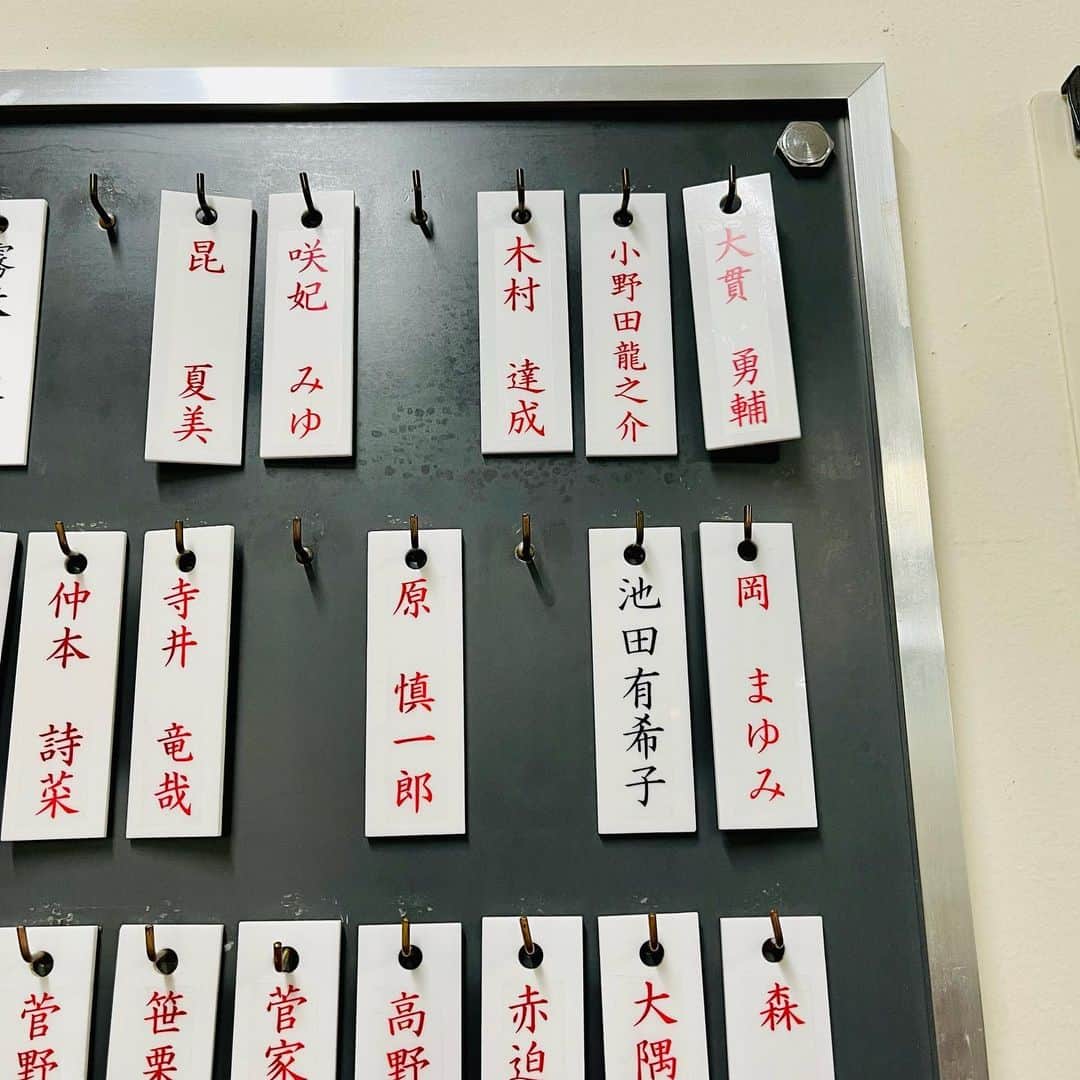 大貫 勇輔
小野田龍之介
木村 達成
咲妃 みゆ
昆 夏美
岡 まゆみ
池田有希子
原 慎一郎
寺井 竜哉
仲本 詩菜
森
大隅
赤迫
高野
菅家
笹栗
菅野